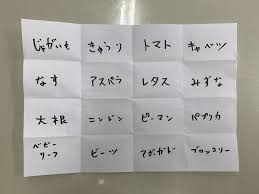 じゃがいも きゅうり トマト キャベツ
なす アスパラ レタス みずな
大根 ニンジン ピーマン パプリカ
ベビーリーフ ビーツ アボガド ブロッコリー